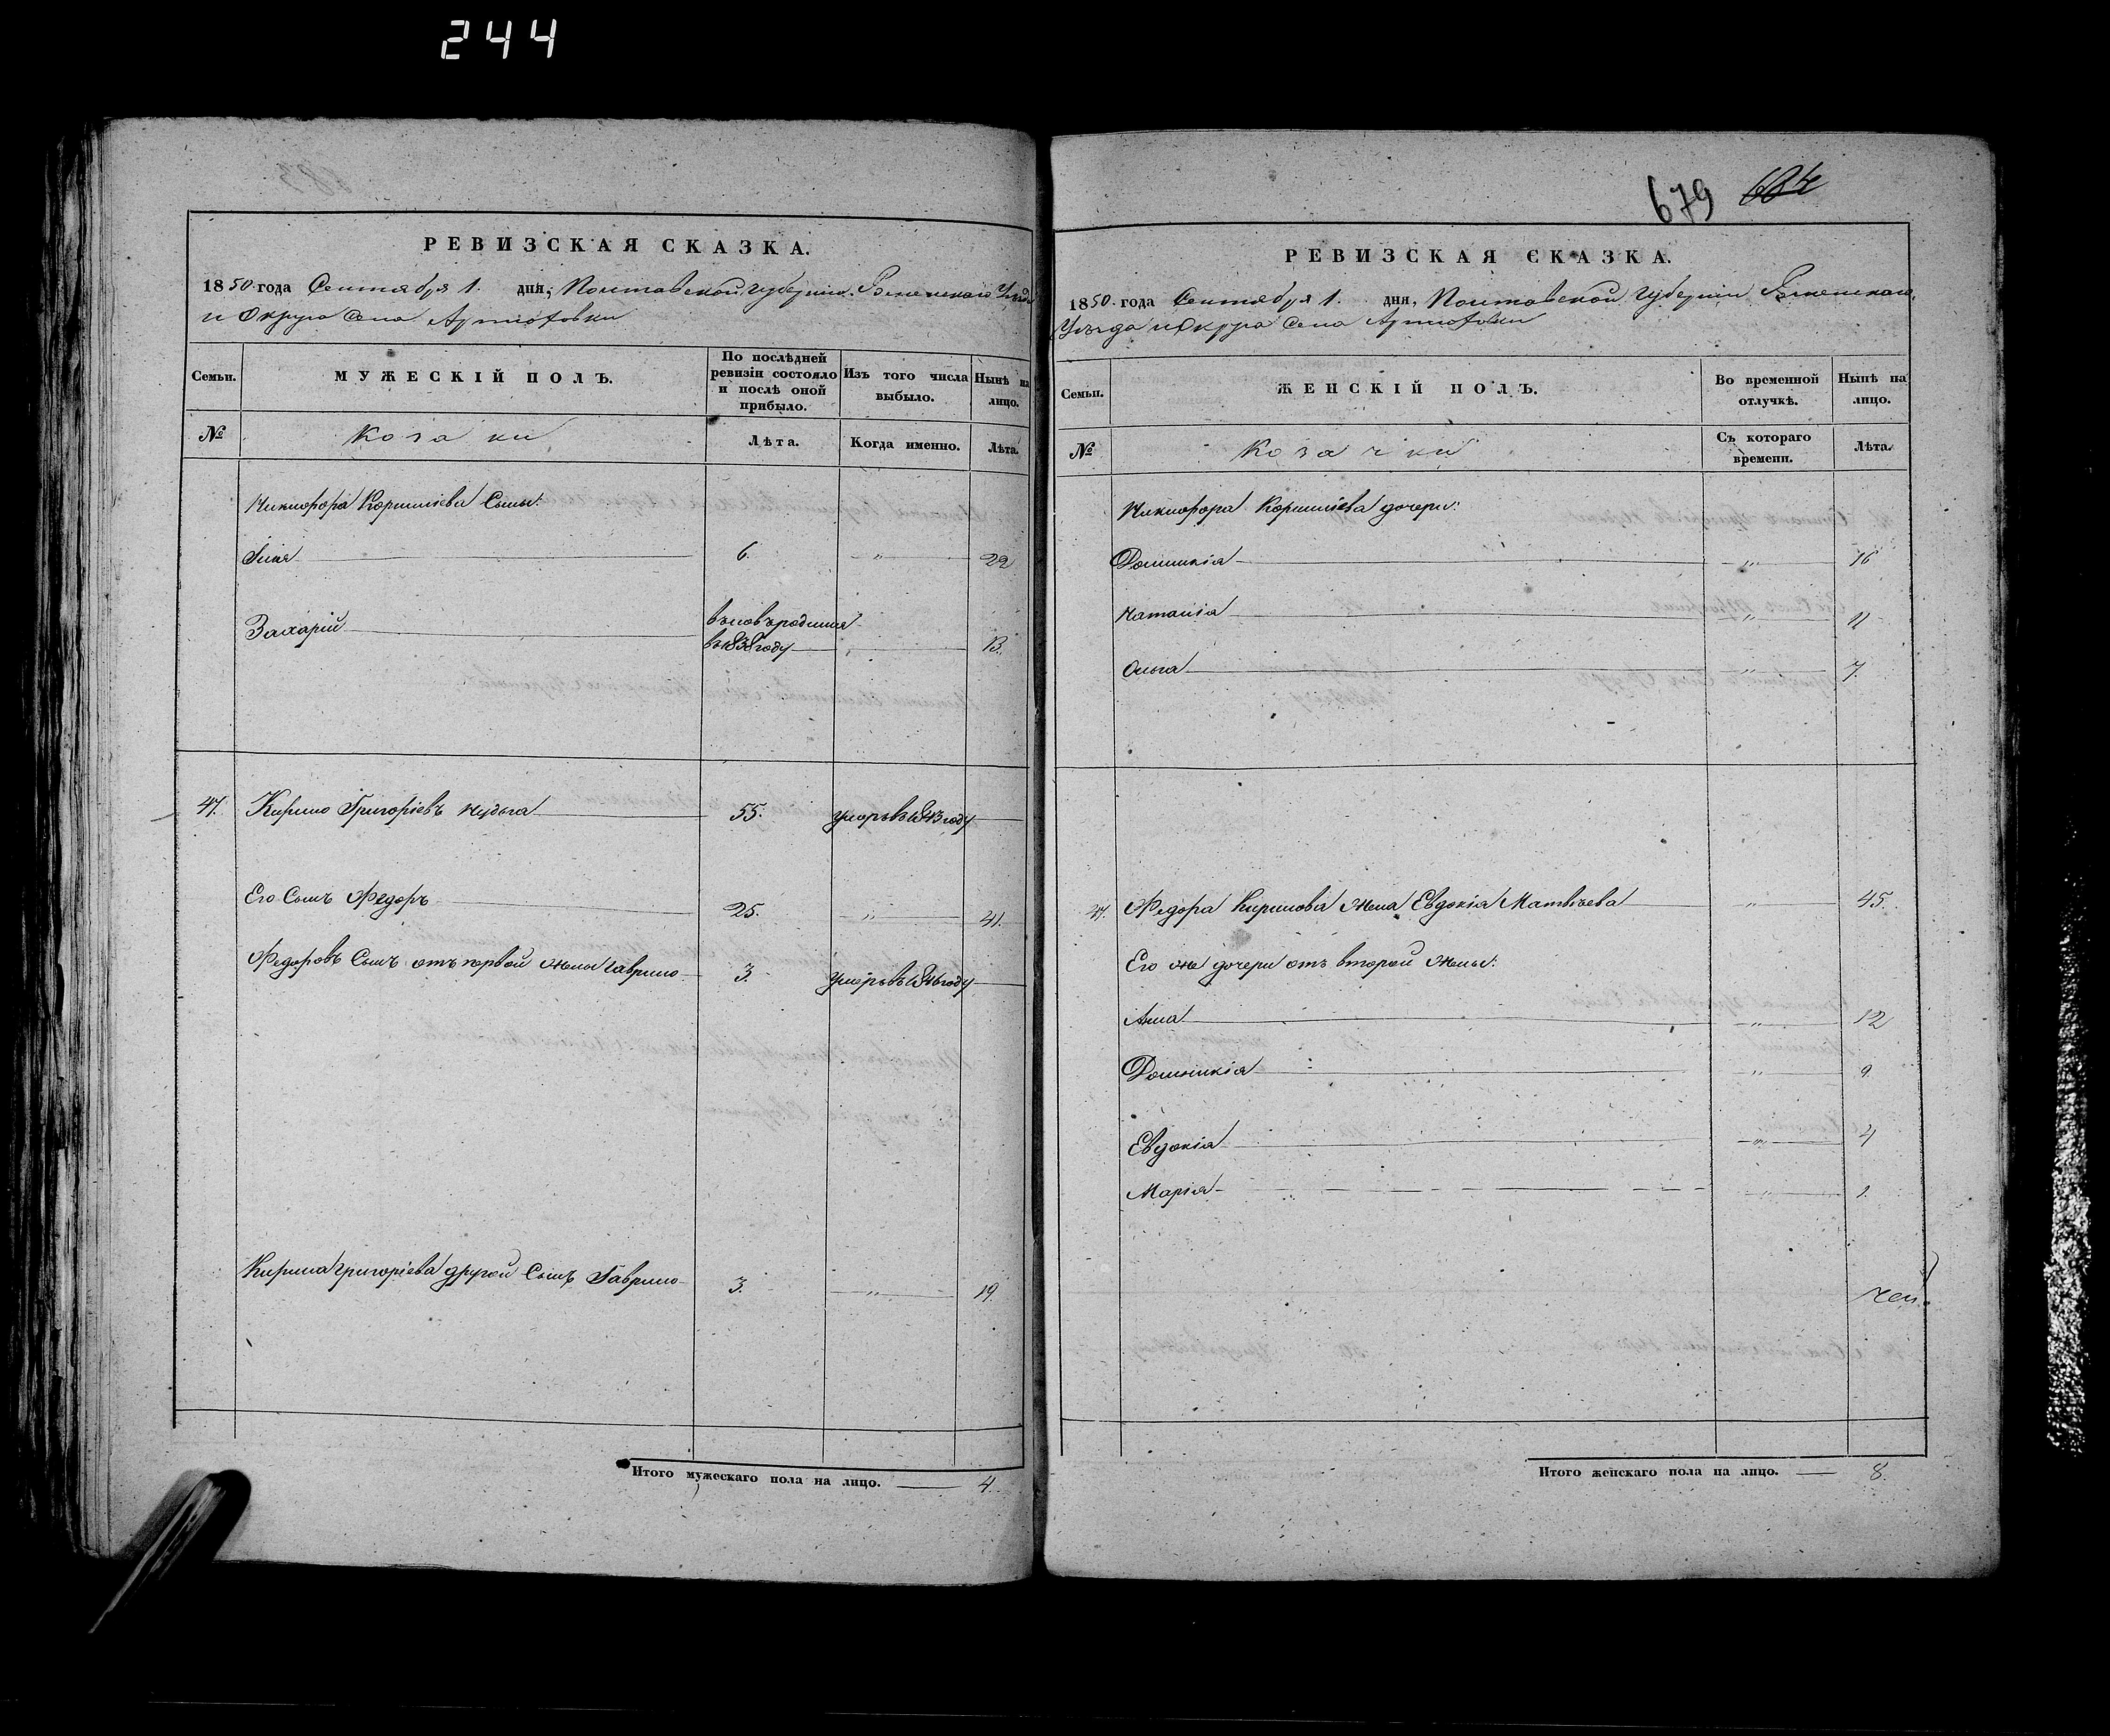 244
РЕВИЗСКАЯ СКАЗКА.
1850 года Сентября 1. дня, Полтавской Губерніи Роменскаго Уезда
и Округа Села Артюховки
Семьи.
МУЖЕСКІЙ ПОЛЪ.
По послѣдней ревизіи состояло и послѣ оной прибыло.
Изъ того числа выбыло.
Нынѣ на лицо.
№
Козаки
Лѣта.
Когда именно.
Лѣта.
Никифора Корниліева Сыны:
Илья 6. " 22
Захарій вновьродился
въ 1838 году " 13.
47. Кирило Григоріевъ Нудьга 55. умеръ въ 1843 году
Его Сынъ Федоръ 25. " 41.
Федоровъ Сынъ отъ первой жены Гаврило 3. умеръ въ году
Кирила Григоріева другой Сынъ Гаврило 3. " 19.
Итого мужескаго пола на лицо. 4.
679 684
РЕВИЗСКАЯ СКАЗКА.
1850. года Сентября 1. дня, Полтавской Губерніи Роменскаго
Уѣзда и Округа Села Артюховки
Семьи.
ЖЕНСКІЙ ПОЛЪ.
Во временной отлучкѣ.
Нынѣ на лицо.
№
Козачки
Съ котораго времени.
Лѣта
Никифора Корниліева дочери:
Домникія " 16
Наталія " 11
Ольга " 7.
47. Федора Кирилова жена Евдокія Матвѣева " 45.
Его же дочери отъ второй жены:
Анна " 12
Домникія " 9.
Евдокія " 4
Марія " 1.
Итого женскаго пола на лицо. 8.